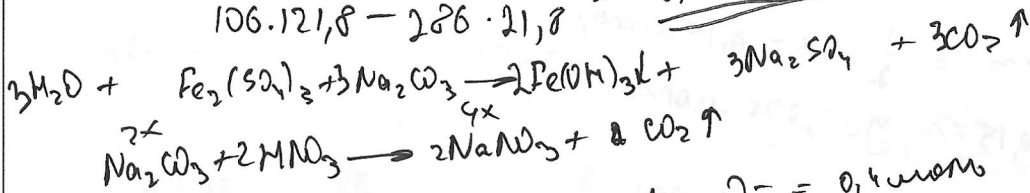 106.121,8 − 286 · 21,8
3H₂O + Fe₂(SO₄)₃ + 3Na₂CO₃ → 2Fe(OH)₃↓ + 3Na₂SO₄ + 3CO₂↑
2x 4x
Na₂CO₃ + 2HNO₃ → 2NaNO₃ + CO₂↑
= 0,4 моль